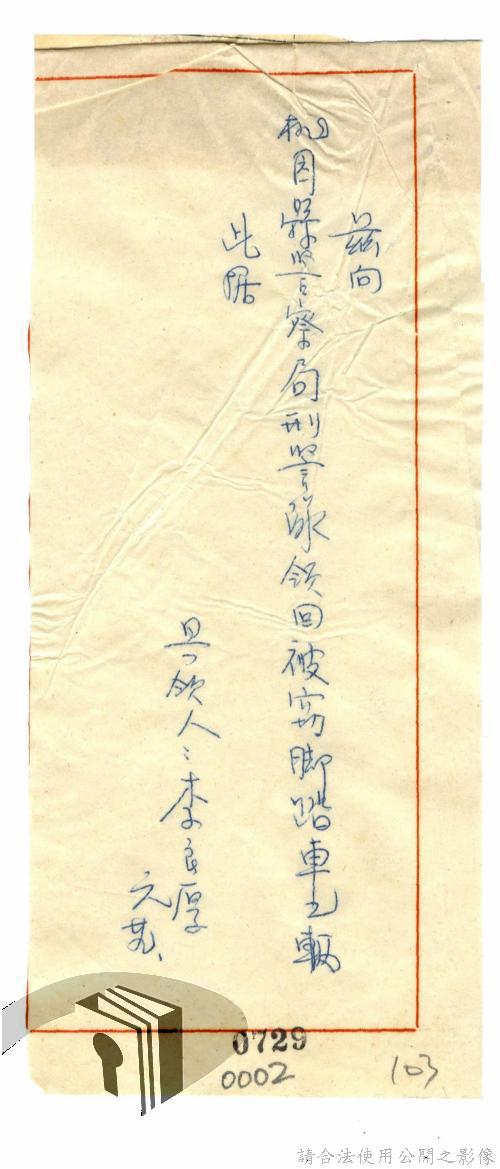 茲向
桃園縣警察局刑警隊領回被窃脚踏車乙輛
此據
具領人：李良厚
元廿、
0729
0002
103
請合法使用公開之影像